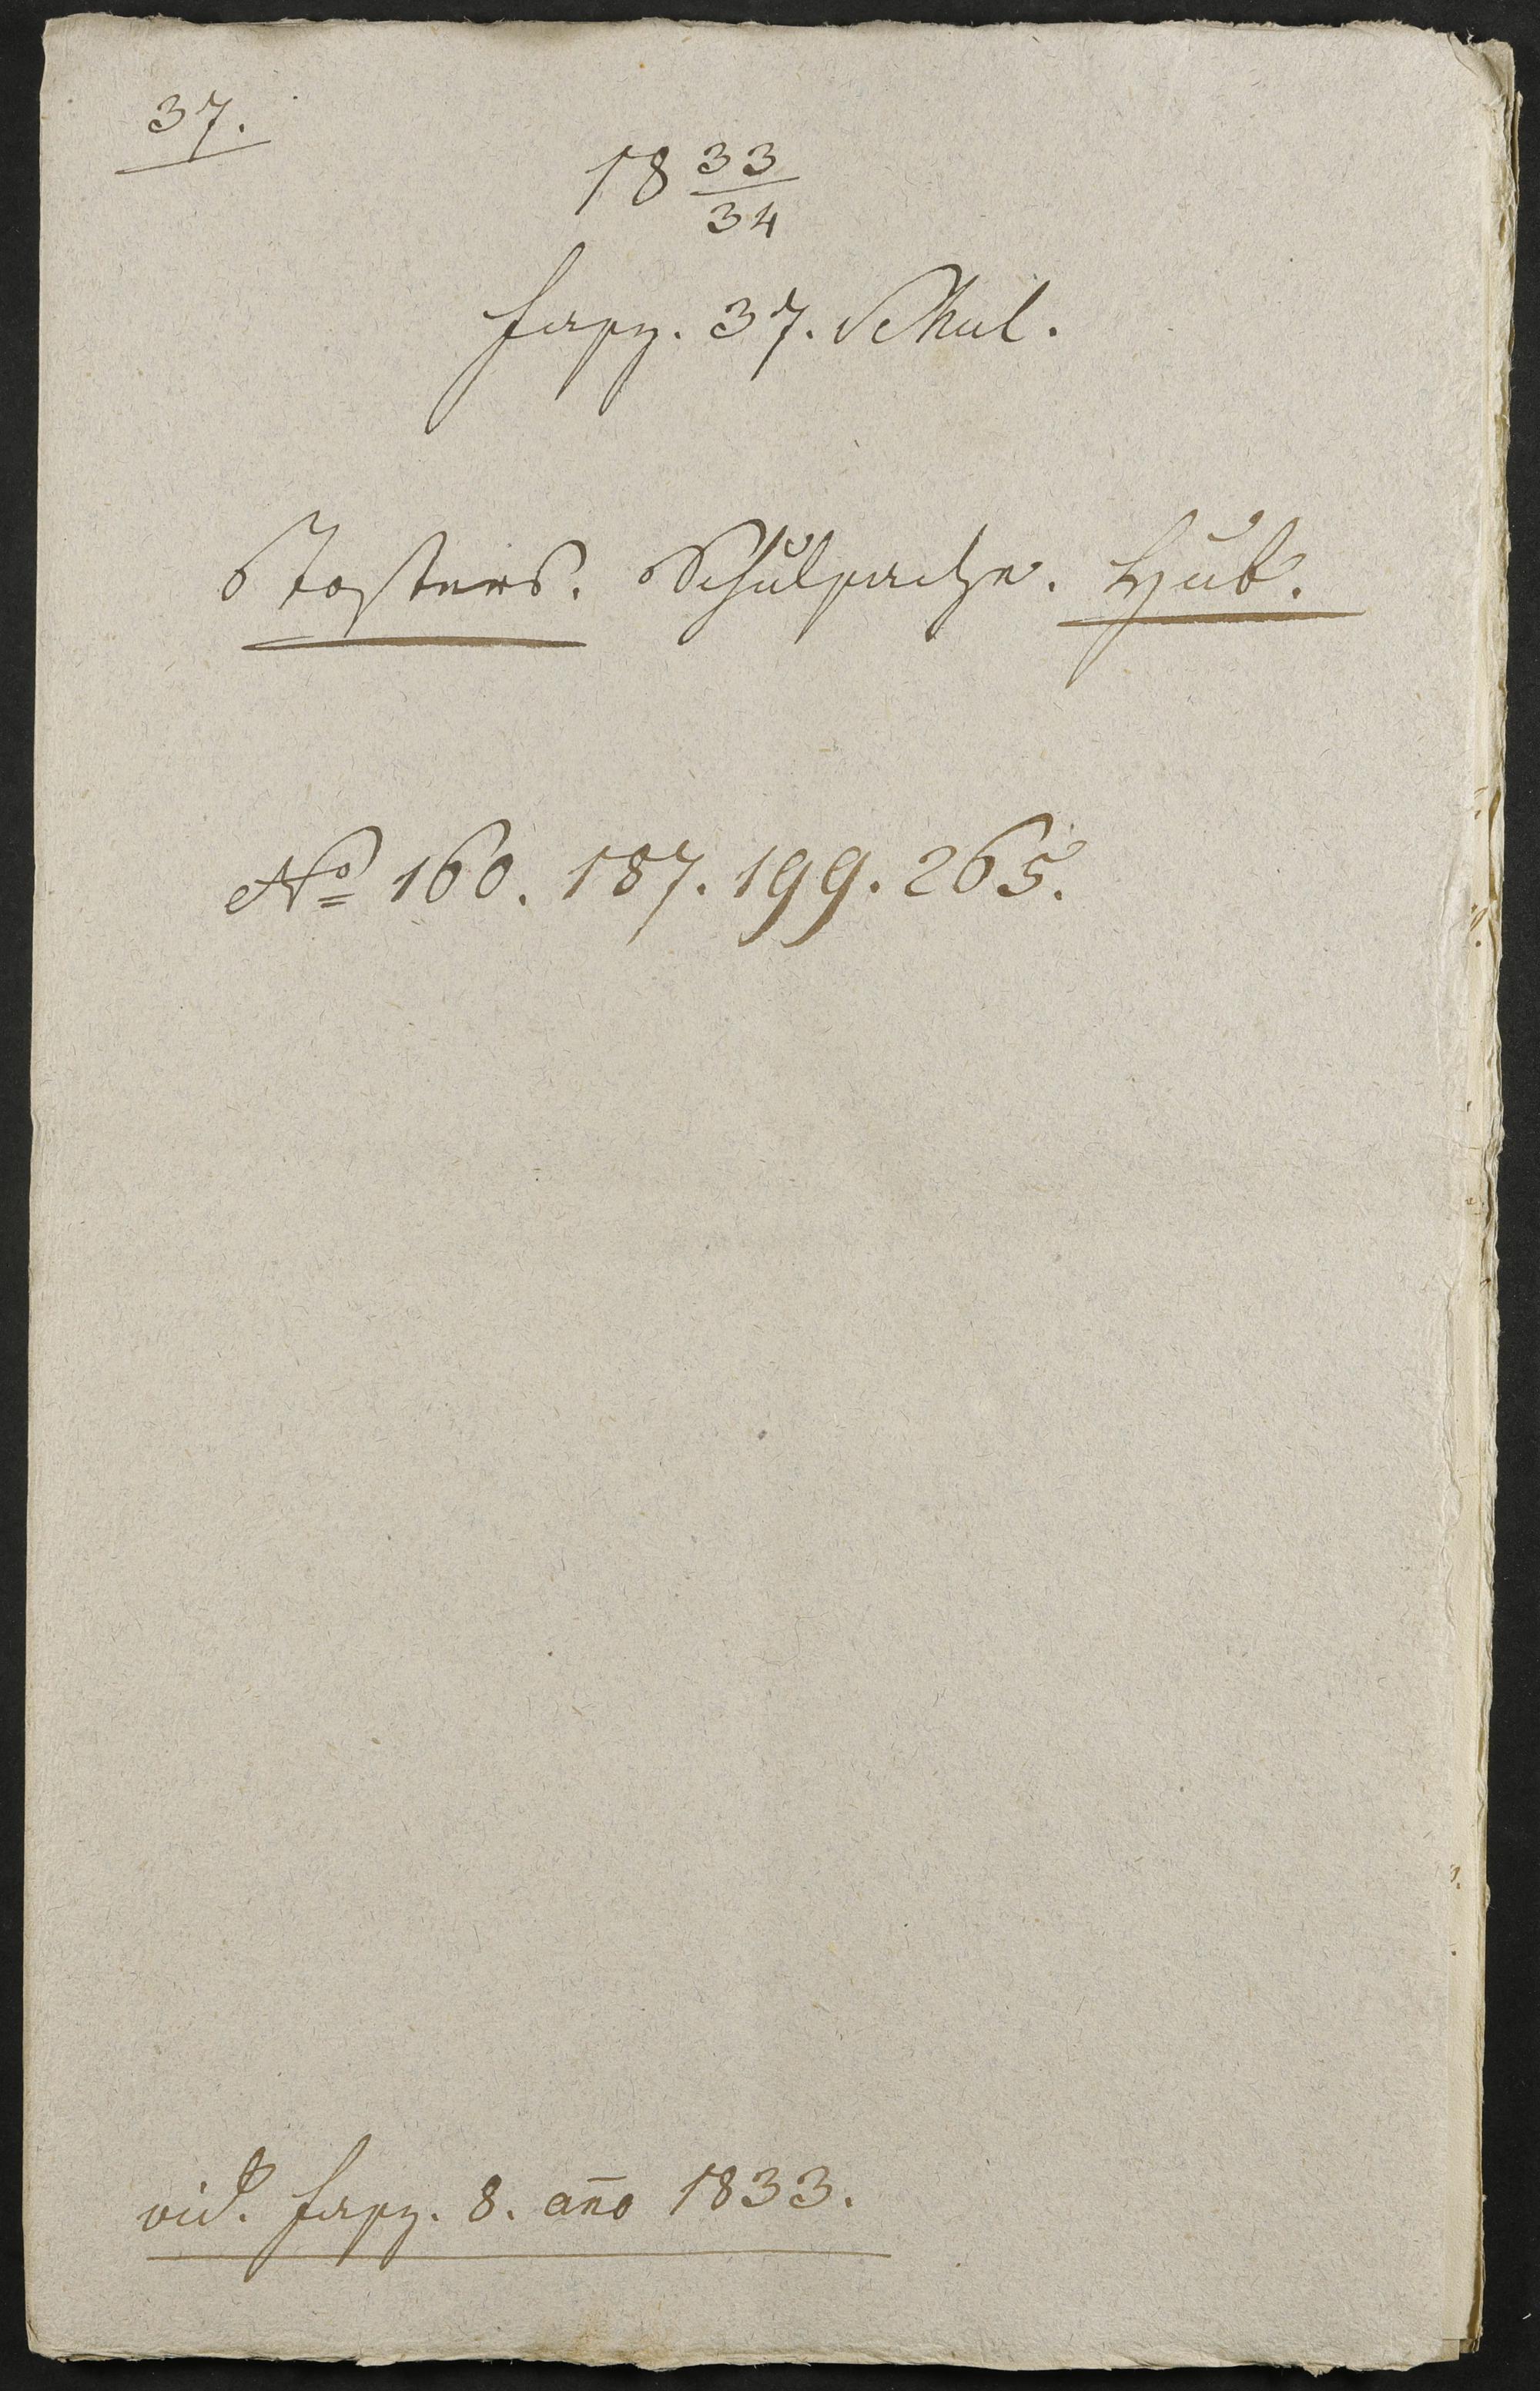 37.
18 33/34
fasz. 37. Schul.
Tosters. Schulsache. Hub.
No 160. 187. 199. 265.
vid. fasz. 8. año 1833.